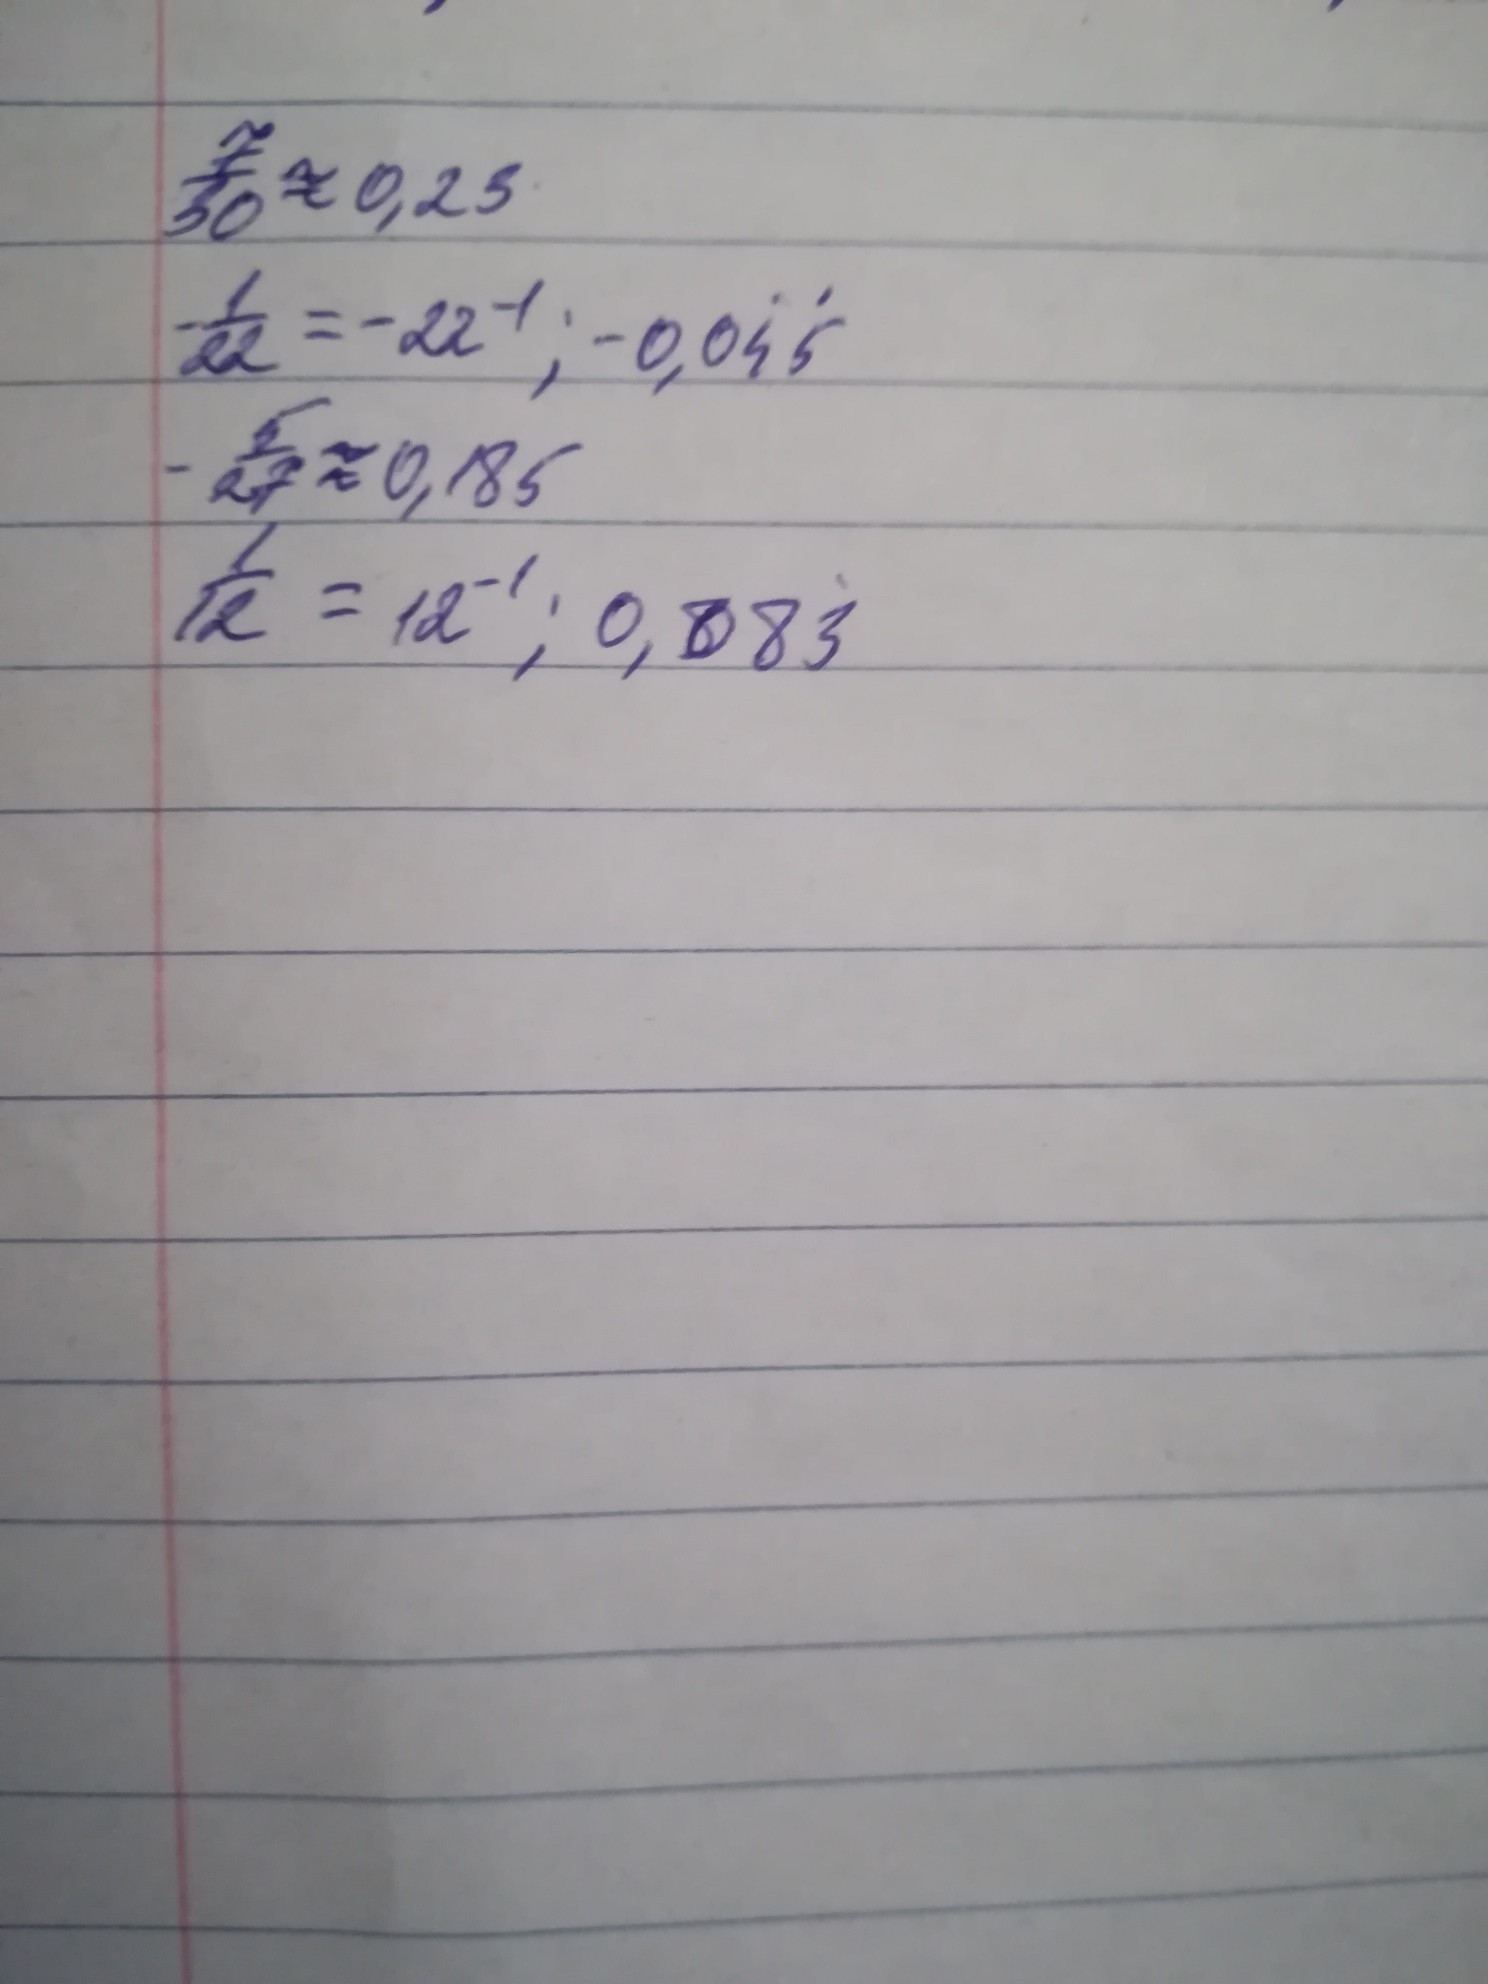 7/30 ≈ 0,23
-1/22 = -22⁻¹; -0,04̇5̇
-5/27 ≈ 0,185
1/12 = 12⁻¹; 0,083̇